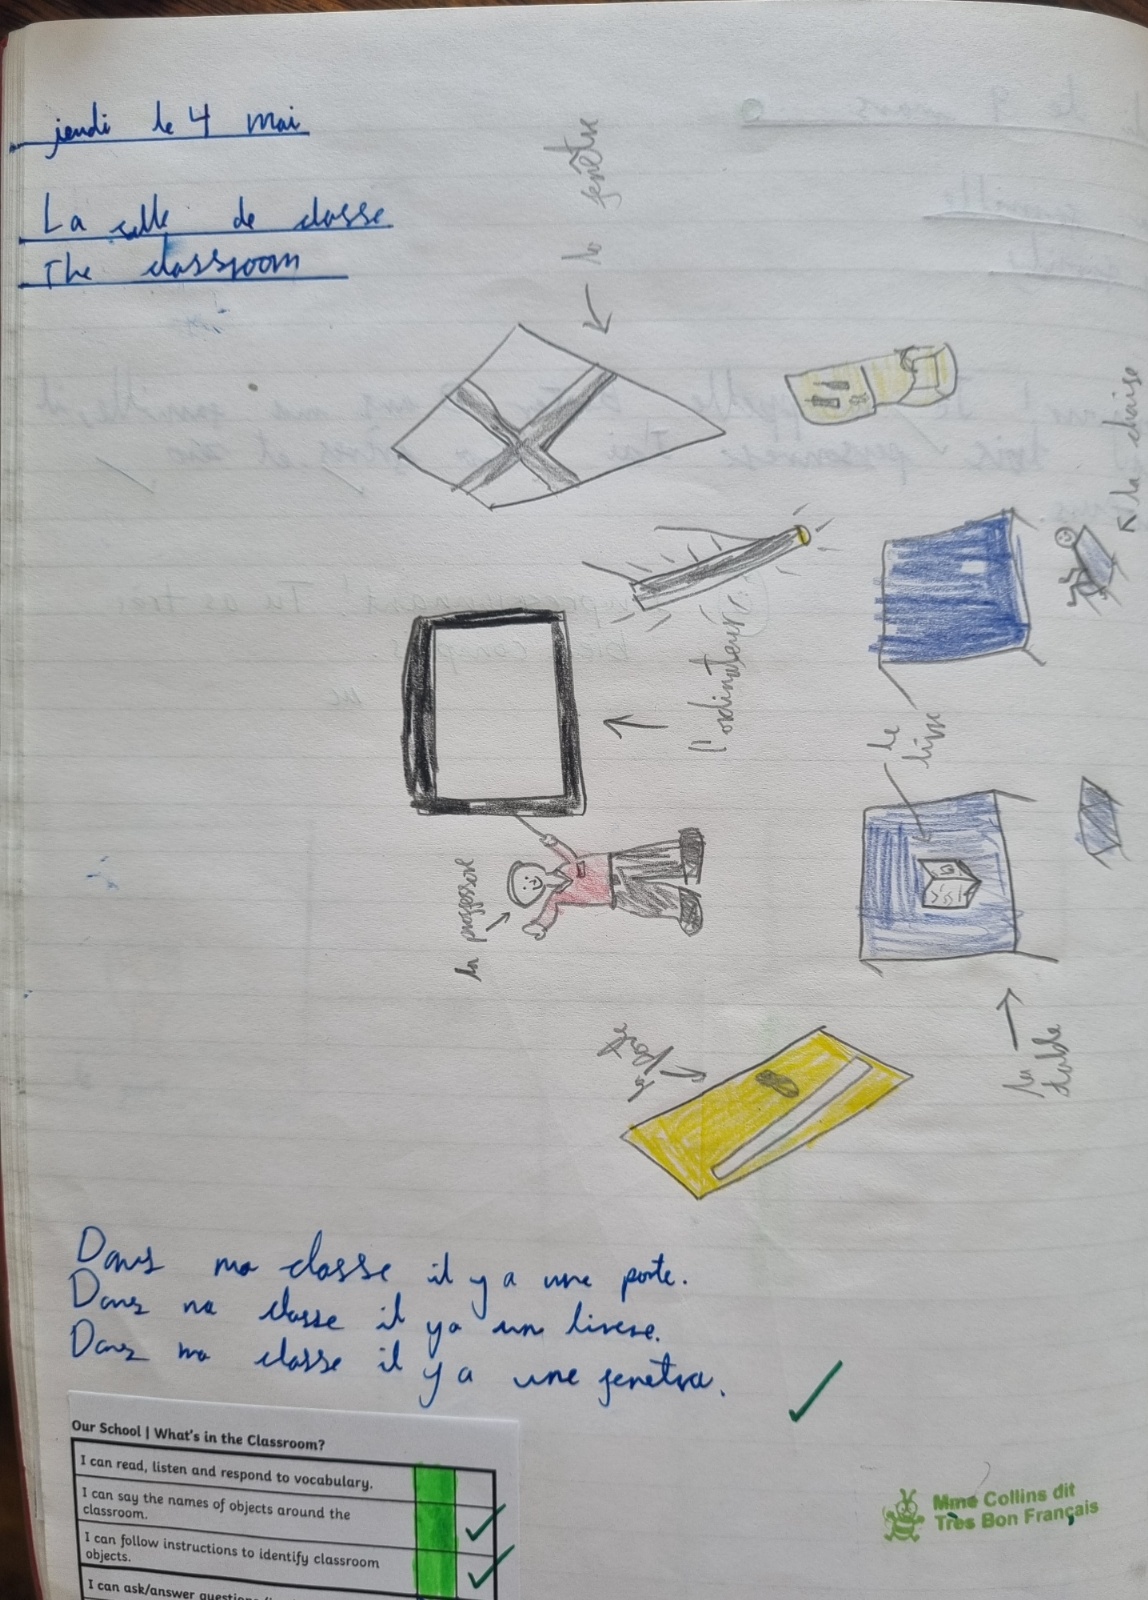 jeudi le 4 mai
La salle de classe
The classroom
la fenêtre
la chaise
l'ordinateur
le
livre
la professor
la porte
la
table
Dans ma classe il y a une porte.
Dans na classe il ya un livrese.
Dans ma classe il y a une fenetra.
Our School | What's in the Classroom?
I can read, listen and respond to vocabulary.
I can say the names of objects around the
classroom.
I can follow instructions to identify classroom
objects.
I can ask/answer
Mme Collins dit
Très Bon Français